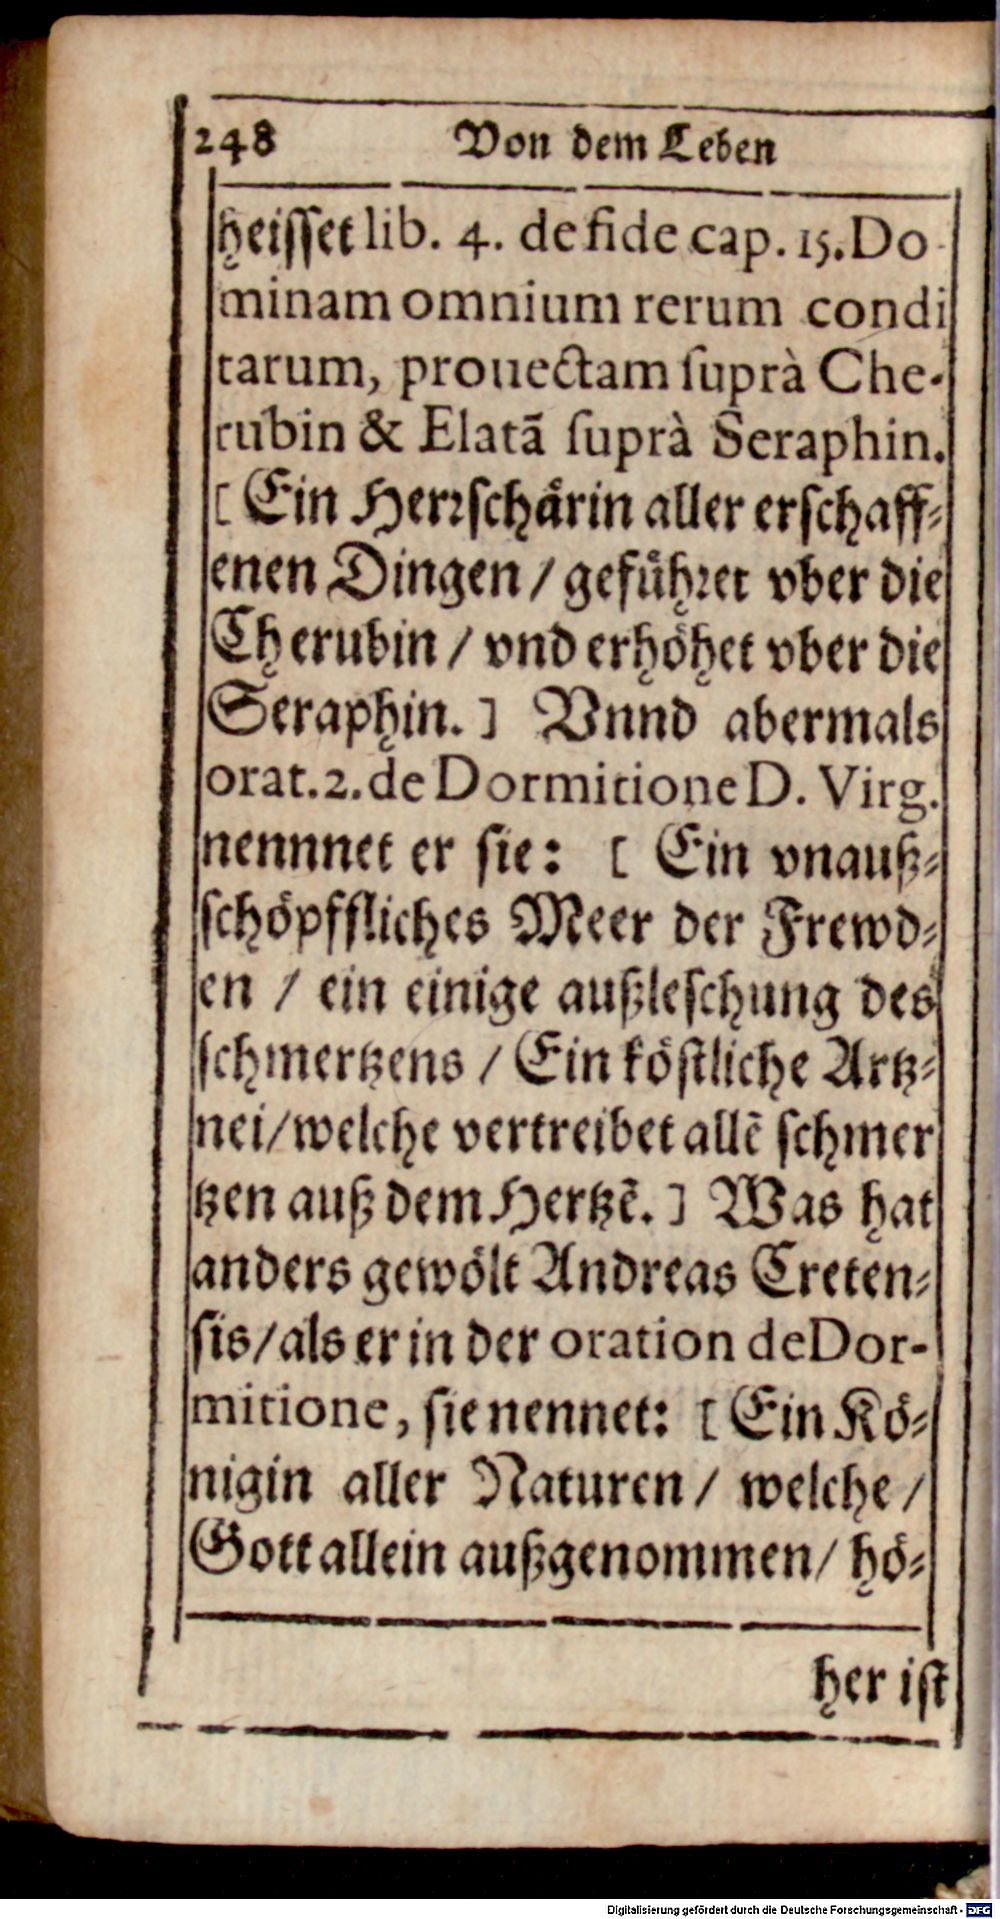 248 Von dem Leben
heisset lib. 4. de fide cap. 15. Do-
minam omnium rerum condi
tarum, prouectam ſuprà Che-
rubin & Elatã ſuprà Seraphin.
[Ein Herꝛſchaͤrin aller erſchaff⸗
enen Dingen / gefuͤhꝛet vber die
Cherubin / vnd erhoͤhet vber die
Seraphin.] Vnnd abermals
orat. 2. de Dormitione D. Virg.
nennnet er ſie: [Ein vnauß⸗
ſchoͤpffliches Meer der Frewd⸗
en / ein einige außleſchung des
ſchmertzens / Ein koͤſtliche Artz⸗
nei/welche vertreibet allẽ ſchmer
tzen auß dem Hertzẽ.] Was hat
anders gewoͤlt Andreas Creten⸗
ſis/als er in der oration de Dor-
mitione, ſie nennet: [Ein Koͤ⸗
nigin aller Naturen/ welche/
Gott allein außgenommen/ hoͤ⸗
her iſt
Digitalisierung gefördert durch die Deutsche Forschungsgemeinschaft - DFG